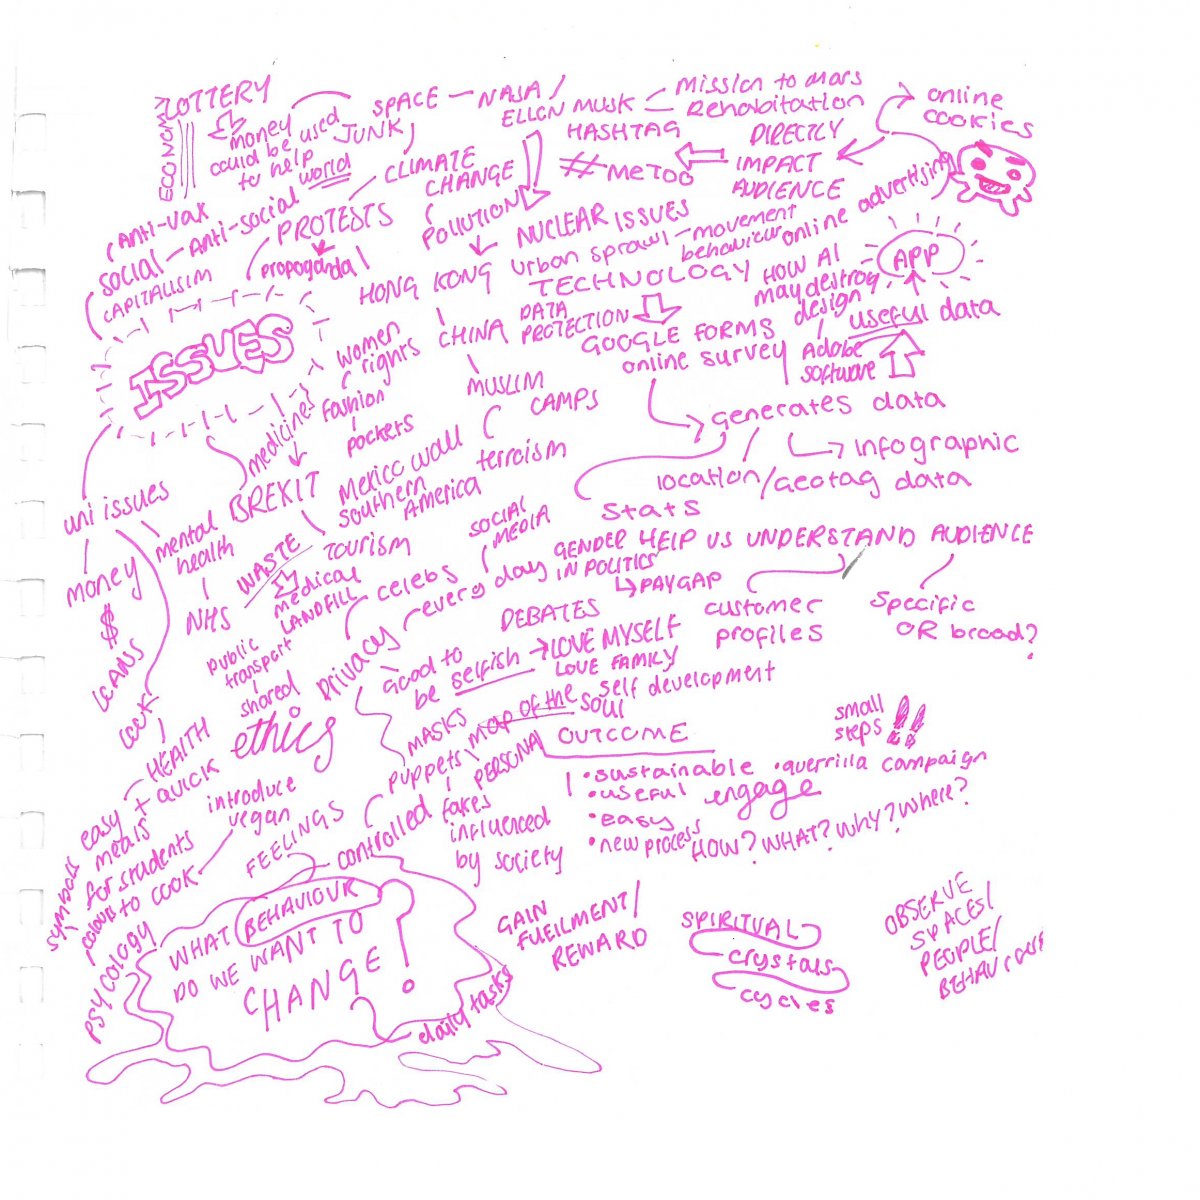 LOTTERY
ECONOMY
money
could be used
to help
world
SPACE — NASA /
ELLON MUSK
JUNK
mission to mars
Rehabitation
HASHTAG
# METOO
DIRECTLY
IMPACT
AUDIENCE
online
cookies
online advertising
CLIMATE
CHANGE
POLLUTION
NUCLEAR ISSUES
urban sprawl - movement
behaviour
anti-vax
social - anti-social
CAPITALISIM
PROTESTS
propoganda
HONG KONG
CHINA
MUSLIM
CAMPS
terroism
TECHNOLOGY
DATA
PROTECTION
HOW AI
may destroy
design
APP
useful data
Adobe
software
GOOGLE FORMS
online survey
generates data
infographic
location/Geotag data
stats
HELP US UNDERSTAND AUDIENCE
customer
profiles
specific
OR broad?
ISSUES
women
rights
fashion
pockets
medicines
BREXIT
mexico wall
southern
America
tourism
uni issues
money
$
LOANS
COOK
mental
health
NHS
WASTE
medical
LANDFILL
public
transport
shared
ethics
privacy
celebs
every day
SOCIAL
MEDIA
GENDER
IN POLITICS
PAYGAP
DEBATES
Good to
be selfish
LOVE MYSELF
LOVE FAMILY
self development
map of the soul
MASKS
puppets
PERSONA
fakes
controlled
influenced
by society
OUTCOME
• sustainable
• useful
• easy
• new process
• guerrilla campaign
engage
small
steps
HOW? WHAT? WHY? Where?
HEALTH
easy + QUICK
meals
for students
to COOK
introduce
vegan
FEELINGS
symbols
colour
PSYCOLOGY
WHAT BEHAVIOUR
DO WE WANT TO
CHANGE?
daily tasks
GAIN
FULFILMENT/
REWARD
SPIRITUAL
crystals
cycles
OBSERVE
SPACES/
PEOPLE/
BEHAVIOUR